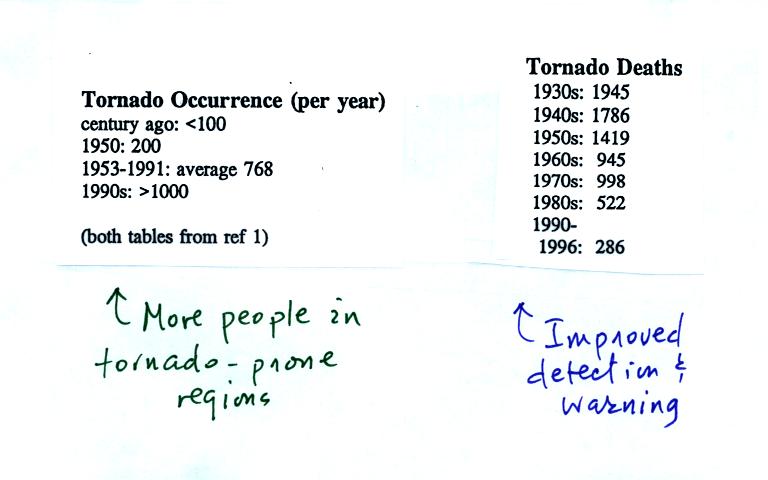 Tornado Occurrence (per year)
century ago: <100
1950: 200
1953-1991: average 768
1990s: >1000
(both tables from ref 1)
↑ More people in
tornado-prone
regions
Tornado Deaths
1930s: 1945
1940s: 1786
1950s: 1419
1960s: 945
1970s: 998
1980s: 522
1990-
1996: 286
↑ Improved
detection &
warning